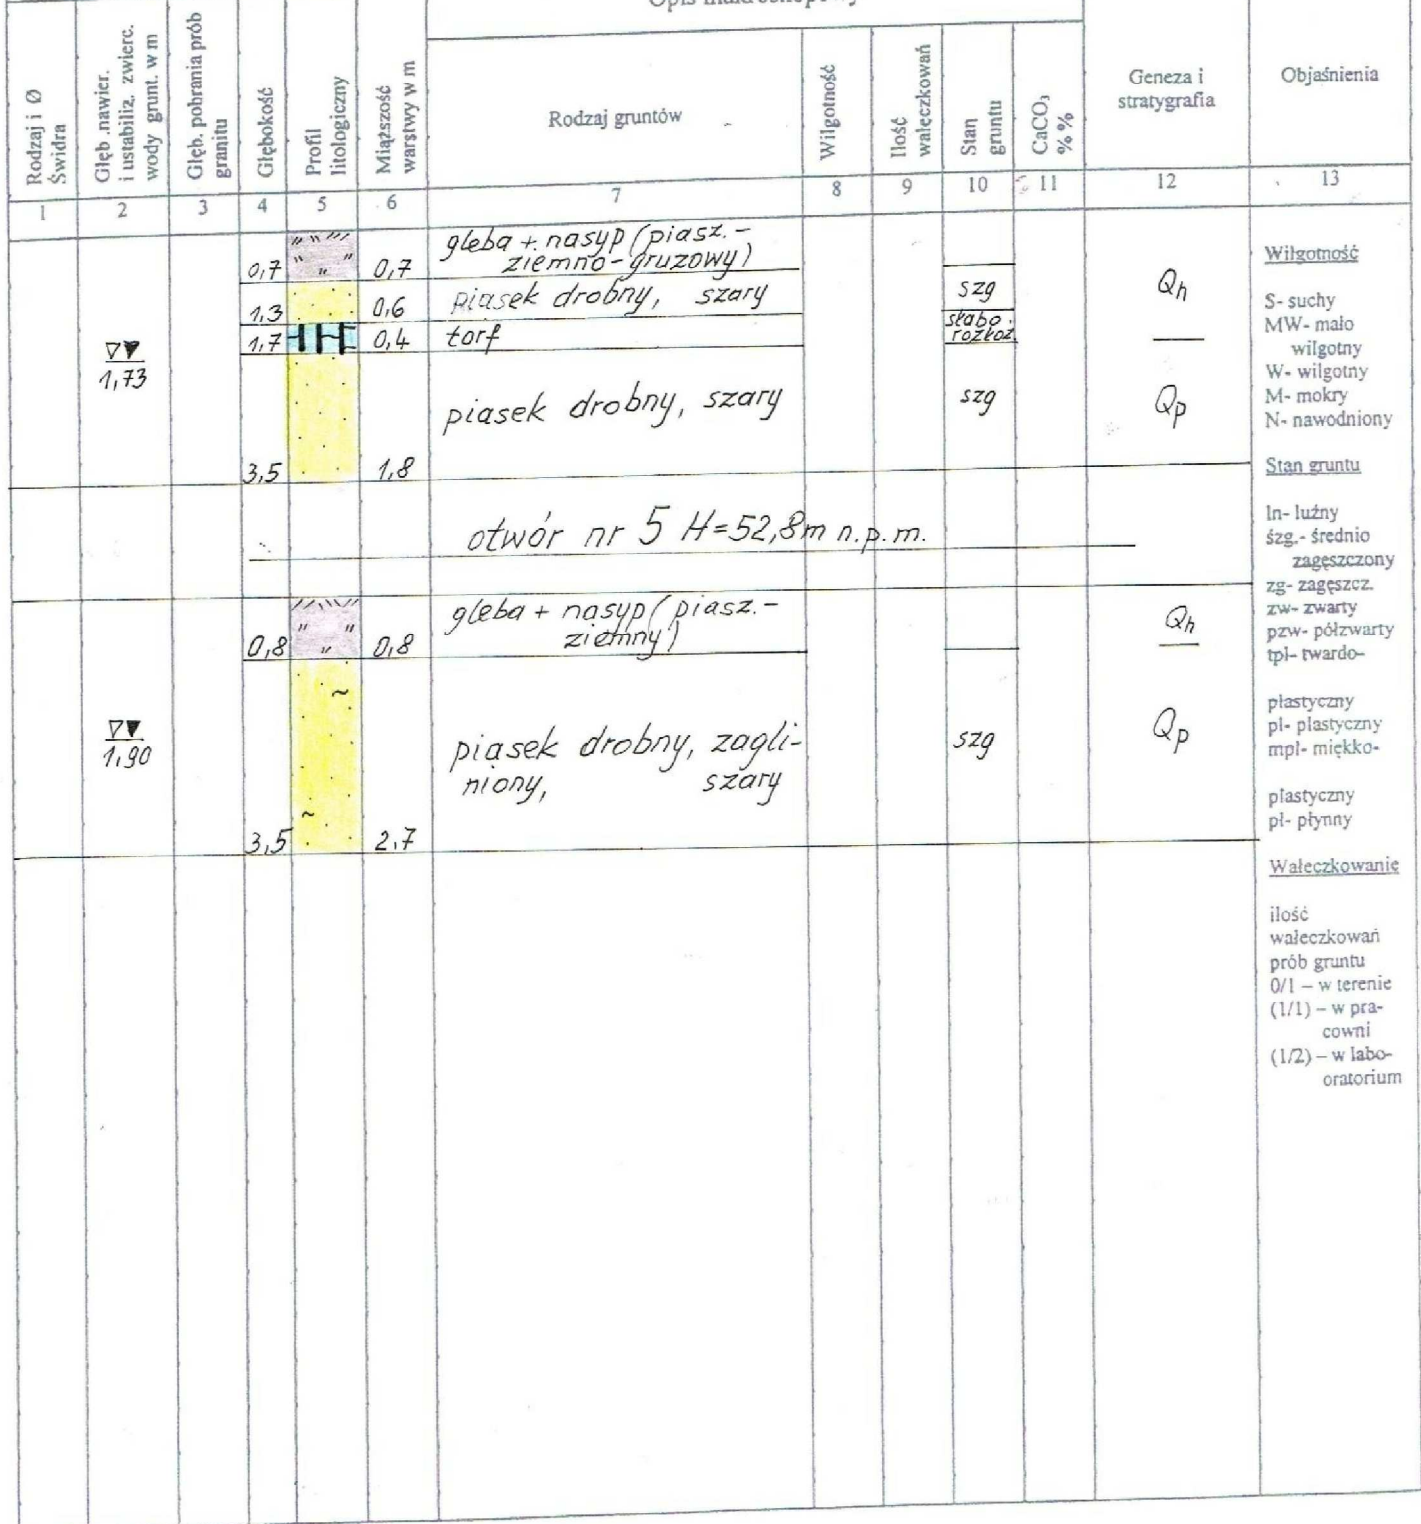 Rodzaj i Ø
Świdra
Głęb .nawier.
i ustabiliz. zwierc.
wody grunt. w m
Głęb. pobrania prób
granitu
Głębokość
Profil
litologiczny
Miąższość
warstwy w m
Rodzaj gruntów
Wilgotność
Ilość
wałeczkowań
Stan
gruntu
CaCO₃
% %
Geneza i
stratygrafia
Objaśnienia
1 2 3 4 5 6 7 8 9 10 11 12 13
gleba + nasyp (piasz.-
ziemno-gruzowy)
0,7 0,7
piasek drobny, szary
1,3 0,6 szg Qh
torf
1,7 0,4 słabo
rozkoż.
1,73
piasek drobny, szary szg Qp
3,5 1,8
otwór nr 5 H=52,8m n.p.m.
gleba + nasyp (piasz.-
ziemny)
0,8 0,8 Qh
1,90
piasek drobny, zagli-
niony, szary
szg Qp
3,5 2,7
Wilgotność
S- suchy
MW- mało
wilgotny
W- wilgotny
M- mokry
N- nawodniony
Stan gruntu
ln- luźny
śzg.- średnio
zagęszczony
zg- zagęszcz.
zw- zwarty
pzw- półzwarty
tpl- twardo-
plastyczny
pl- plastyczny
mpl- miękko-
plastyczny
pł- płynny
Wałeczkowanie
ilość
wałeczkowań
prób gruntu
0/1 – w terenie
(1/1) – w pra-
cowni
(1/2) – w labo-
oratorium